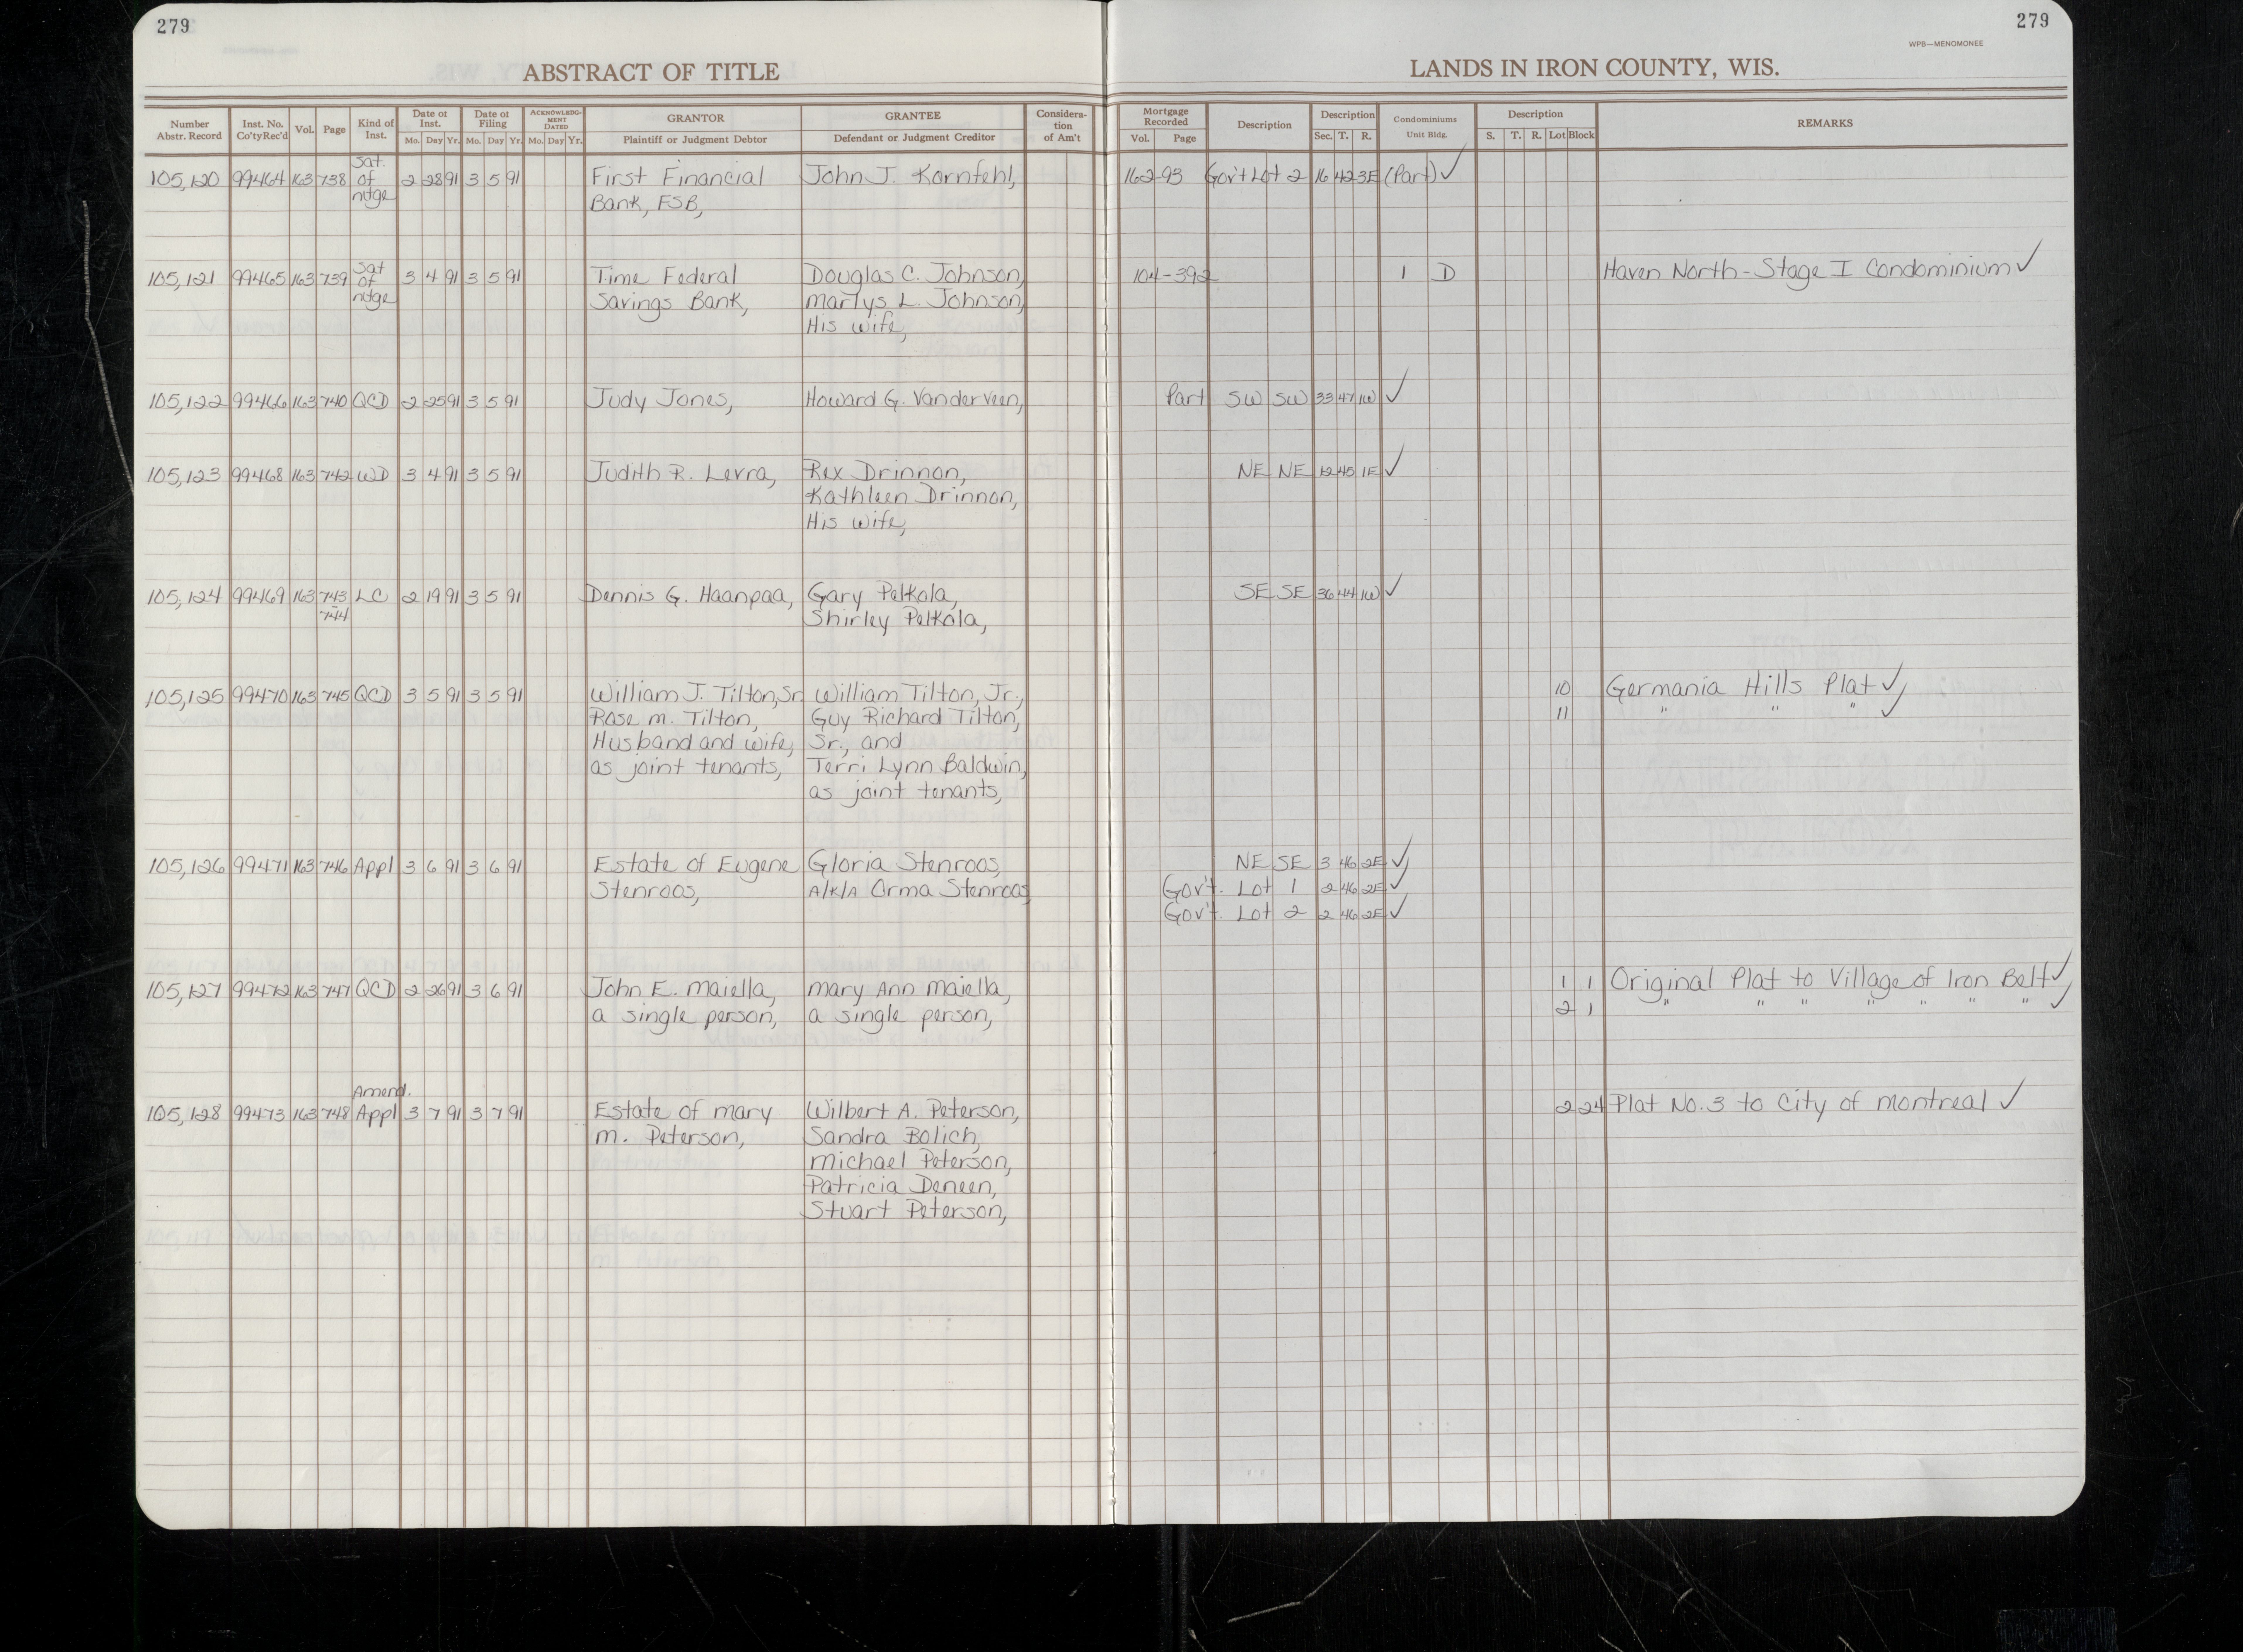 279
279
WPB—MENOMONEE
ABSTRACT OF TITLE
LANDS IN IRON COUNTY, WIS.
Number Abstr. Record | Inst. No. Co'tyRec'd | Vol. | Page | Kind of Inst. | Date of Inst. Mo. Day Yr. | Date of Filing Mo. Day Yr. | ACKNOWLEDGMENT DATED Mo. Day Yr. | GRANTOR Plaintiff or Judgment Debtor | GRANTEE Defendant or Judgment Creditor | Consideration of Am't | Mortgage Recorded Vol. Page | Description | Description Sec. T. R. | Condominiums Unit Bldg. | Description S. T. R. Lot Block | REMARKS
Sat.
105,120 99464 163 738 of 2 28 91 3 5 91 First Financial John J. Kornfehl, 162-93 Gov't Lot 2 16 42 3E (Part) ✓
mtge Bank, FSB,
Sat
105,121 99465 163 739 of 3 4 91 3 5 91 Time Federal Douglas C. Johnson, 104-392 1 D Haven North - Stage I Condominium ✓
mtge Savings Bank, Marlys L. Johnson,
His wife,
105,122 99466 163 740 QCD 2 25 91 3 5 91 Judy Jones, Howard G. Vanderveen, Part SW SW 33 47 1W ✓
105,123 99468 163 742 WD 3 4 91 3 5 91 Judith R. Levra, Rex Drinnon, NE NE 12 45 1E ✓
Kathleen Drinnon,
His wife,
105,124 99469 163 743 LC 2 19 91 3 5 91 Dennis G. Haanpaa, Gary Pelkola, SE SE 36 44 1W ✓
744 Shirley Pelkola,
105,125 99470 163 745 QCD 3 5 91 3 5 91 William J. Tilton, Sr. William Tilton, Jr., 10 Germania Hills Plat ✓
Rose M. Tilton, Guy Richard Tilton, 11 " " " ✓
Husband and wife, Sr., and
as joint tenants, Terri Lynn Baldwin,
as joint tenants,
105,126 99471 163 746 Appl 3 6 91 3 6 91 Estate of Eugene Gloria Stenroos, NE SE 3 46 2E ✓
Stenroos, A/K/A Orma Stenroos, Gov't. Lot 1 2 46 2E ✓
Gov't. Lot 2 2 46 2E ✓
105,127 99472 163 747 QCD 2 26 91 3 6 91 John E. Maiella, Mary Ann Maiella, 1 1 Original Plat to Village of Iron Belt ✓
a single person, a single person, 2 1 " " " " " " " ✓
Amend.
105,128 99473 163 748 Appl 3 7 91 3 7 91 Estate of Mary Wilbert A. Peterson, 2 24 Plat No. 3 to City of Montreal ✓
M. Peterson, Sandra Bolich,
Michael Peterson,
Patricia Deneen,
Stuart Peterson,